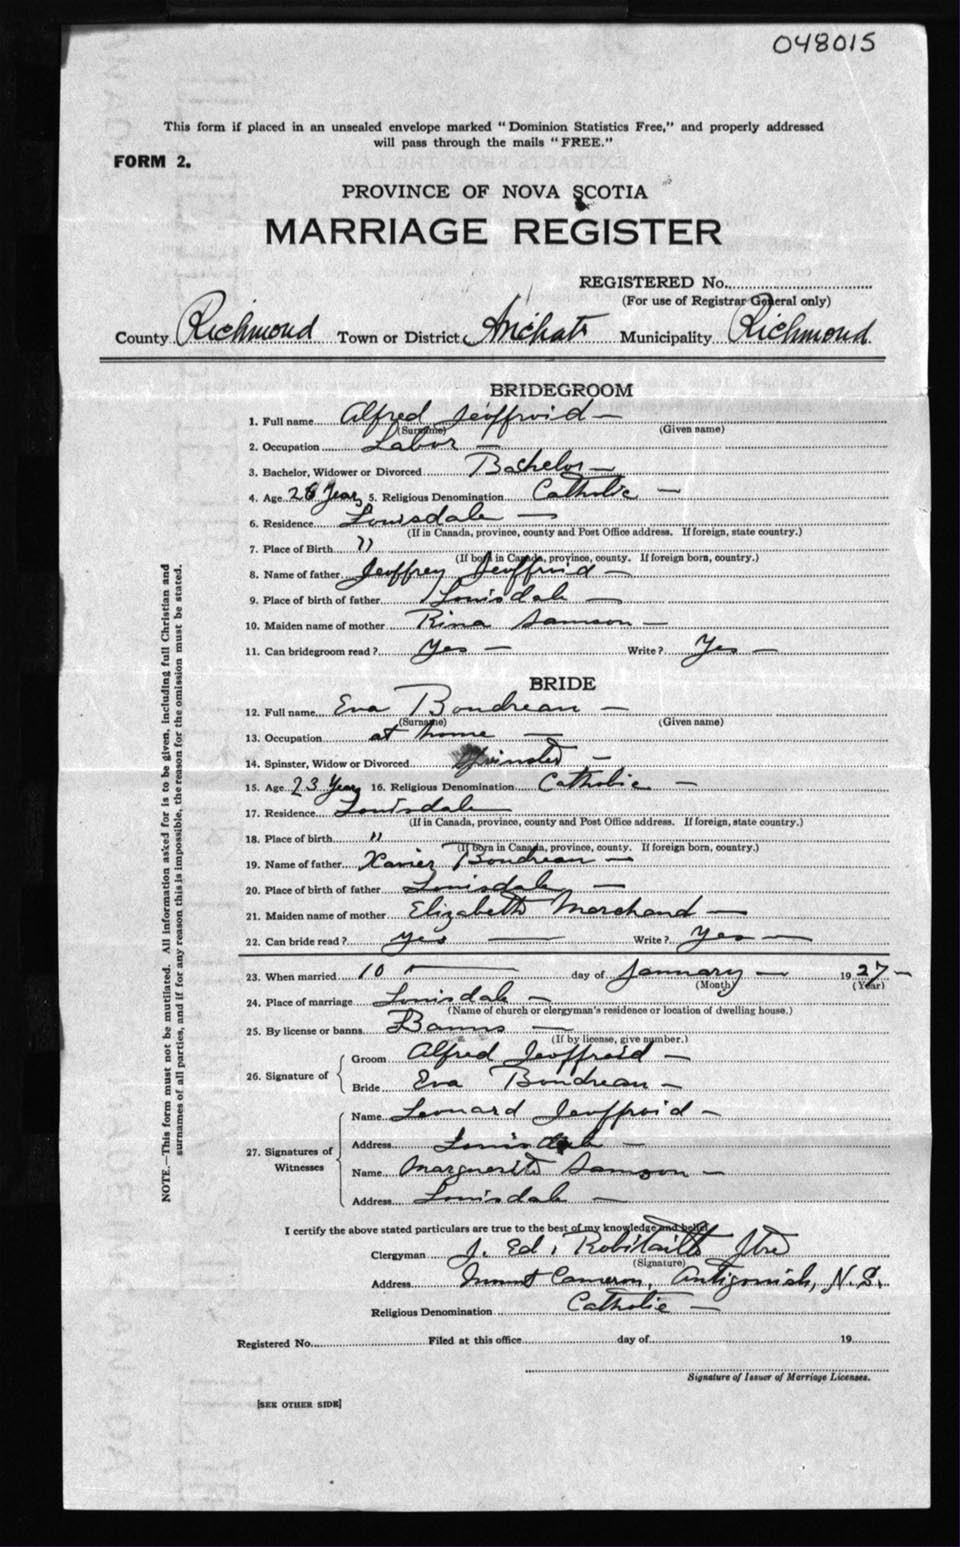 048015
This form if placed in an unsealed envelope marked "Dominion Statistics Free," and properly addressed
will pass through the mails "FREE."
FORM 2.
PROVINCE OF NOVA SCOTIA
MARRIAGE REGISTER
REGISTERED No.
(For use of Registrar General only)
County Richmond Town or District Arichat Municipality Richmond
BRIDEGROOM
1. Full name Alfred Jeoffroid —
(Surname) (Given name)
2. Occupation Labor —
3. Bachelor, Widower or Divorced Bachelor —
4. Age 28 Years 5. Religious Denomination Catholic —
6. Residence Louisdale —
(If in Canada, province, county and Post Office address. If foreign, state country.)
7. Place of Birth "
(If born in Canada, province, county. If foreign born, country.)
8. Name of father Jeoffrey Jeoffroid —
9. Place of birth of father Louisdale —
10. Maiden name of mother Rina Samson —
11. Can bridegroom read? Yes — Write? Yes —
BRIDE
12. Full name Eva Boudreau —
(Surname) (Given name)
13. Occupation at home —
14. Spinster, Widow or Divorced Spinster —
15. Age 23 Years 16. Religious Denomination Catholic —
17. Residence Louisdale
(If in Canada, province, county and Post Office address. If foreign, state country.)
18. Place of birth "
(If born in Canada, province, county. If foreign born, country.)
19. Name of father Xavier Boudreau —
20. Place of birth of father Louisdale —
21. Maiden name of mother Elizabeth Marchand —
22. Can bride read? yes — Write? yes —
23. When married 10 — day of January — 1927 —
(Month) (Year)
24. Place of marriage Louisdale —
(Name of church or clergyman's residence or location of dwelling house.)
25. By license or banns Banns —
(If by license, give number.)
26. Signature of Groom Alfred Jeoffroid —
Bride Eva Boudreau —
27. Signatures of Witnesses Name Leonard Jeoffroid —
Address Louisdale —
Name Marguerite Samson —
Address Louisdale —
I certify the above stated particulars are true to the best of my knowledge and belief.
Clergyman J. Ed. Robitaille Ptre
(Signature)
Address Mount Cameron, Antigonish, N.S.
Religious Denomination Catholic —
Registered No. Filed at this office day of 19
Signature of Issuer of Marriage Licenses.
[SEE OTHER SIDE]
NOTE.—This form must not be mutilated. All information asked for is to be given, including full Christian and
surnames of all parties, and if for any reason this is impossible, the reason for the omission must be stated.